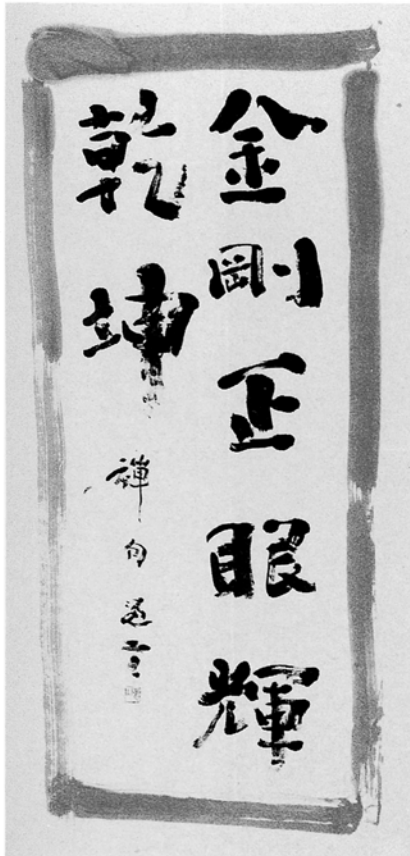 金剛正眼輝
乾坤
禅句